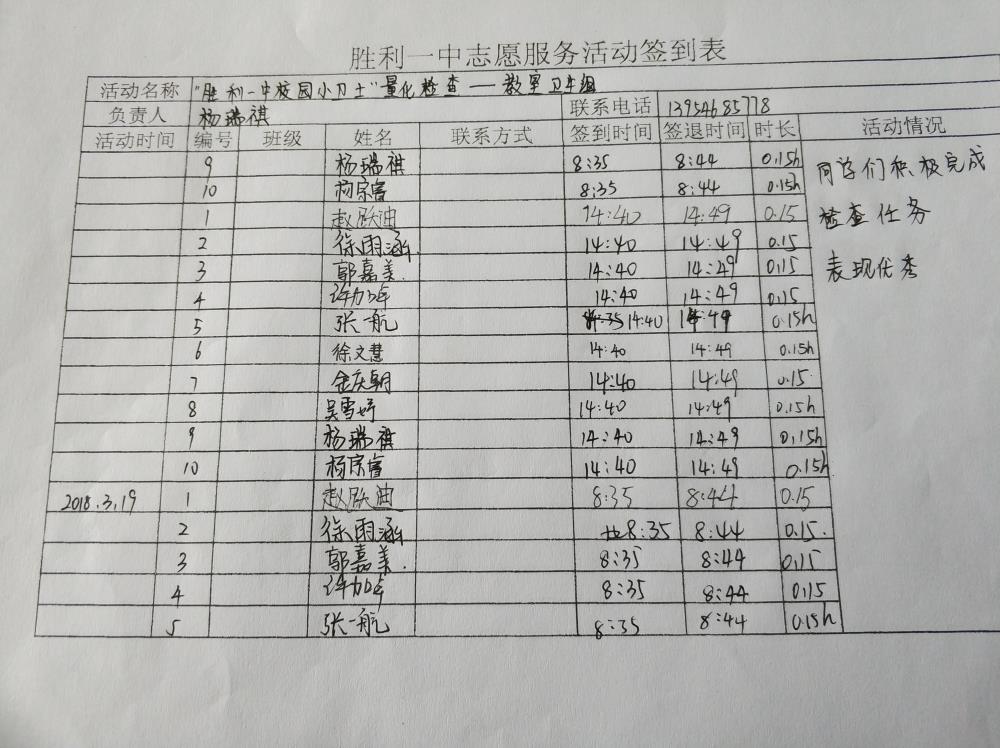 胜利一中志愿服务活动签到表
活动名称 "胜利一中校园小卫士"量化检查——教室卫生组
负责人 杨瑞祺 联系电话 13954685778
活动时间 编号 班级 姓名 联系方式 签到时间 签退时间 时长 活动情况
9 杨瑞祺 8:35 8:44 0.15h
10 杨宗睿 8:35 8:44 0.15h
1 赵跃迪 14:40 14:49 0.15
2 徐雨涵 14:40 14:49 0.15
3 郭嘉美. 14:40 14:49 0.15
4 许加卓 14:40 14:49 0.15
5 张一航 14:40 14:49 0.15h
6 徐文慧 14:40 14:49 0.15h
7 金庆朝 14:40 14:49 0.15.
8 吴雪婷 14:40 14:49 0.15h
9 杨瑞祺 14:40 14:49 0.15h
10 杨宗睿 14:40 14:49 0.15h
2018.3.19 1 赵跃迪 8:35 8:44 0.15
2 徐雨涵 8:35 8:44 0.15.
3 郭嘉美. 8:35 8:44 0.15
4 许加卓 8:35 8:44 0.15
5 张一航 8:35 8:44 0.15h
同学们积极完成
检查任务
表现优秀